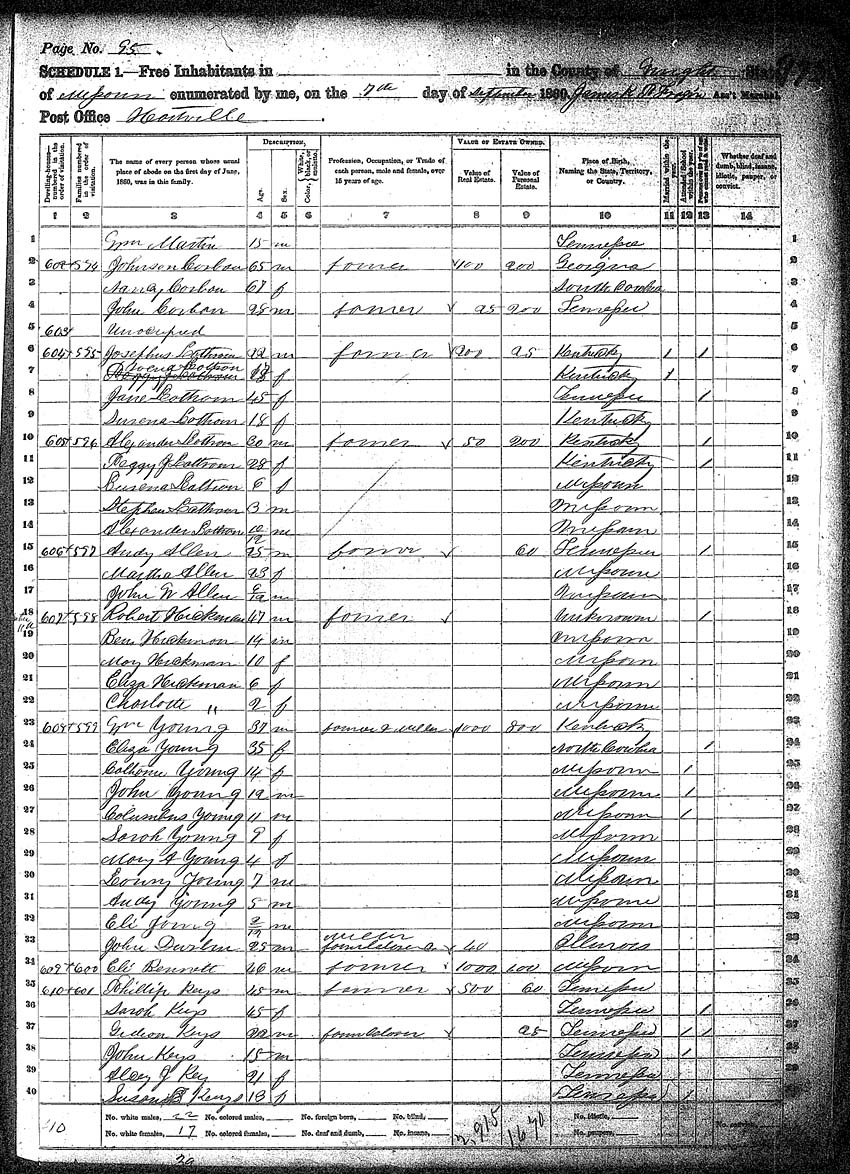 Page No. 95.
SCHEDULE 1.—Free Inhabitants in in the County of Wright State
of Missouri enumerated by me, on the 7th day of September 1860. Ass't Marshal
Post Office Hartville
DESCRIPTION. VALUE OF ESTATE OWNED.
Dwelling-houses—numbered in the order of visitation. Families numbered in the order of visitation. The name of every person whose usual place of abode on the first day of June, 1860, was in this family. Age. Sex. Color, White, black, or mulatto. Profession, Occupation, or Trade of each person, male and female, over 15 years of age. Value of Real Estate. Value of Personal Estate. Place of Birth, Naming the State, Territory, or Country. Married within the year. Attended School within the year. Whether deaf and dumb, blind, insane, idiotic, pauper, or convict.
1 2 3 4 5 6 7 8 9 10 11 12 13 14
1 Wm Martin 15 m Tennessee 1
2 594 Johnson Corban 65 m farmer 400 200 Georgia 2
3 Nancy Corban 67 f South Carolina 3
4 John Corban 28 m farmer 25 200 Tennessee 4
5 603 Unocupied 5
6 604 595 Josephus Lothrom 22 m farmer 200 25 Kentucky 1 1 6
7 f Kentucky 1 7
8 Jane Lothrom 45 f Tennessee 1 8
9 Surena Lothrom 18 f Kentucky 9
10 605 596 Alexander Lothrom 30 m farmer 50 200 Kentucky 1 10
11 Peggy J Lothrom 28 f Kentucky 1 11
12 Lothrom 6 f Missouri 12
13 Stephen Lothrom 3 m Missouri 13
14 Alexander Lothrom 10/12 m Missouri 14
15 606 597 Andy Allen 25 m farmer 60 Tennessee 1 15
16 Martha Allen 23 f Missouri 16
17 John W Allen m Missouri 17
18 607 598 Robert Hickman 47 m farmer Unknown 1 18
19 Ben Hickman 14 m Missouri 19
20 Mary Hickman 10 f Missouri 20
21 Eliza Hickman 6 f Missouri 21
22 Charlotte " 2 f Missouri 22
23 608 599 Wm Young 37 m farmer & miller 1000 800 Kentucky 23
24 Eliza Young 35 f North Carolina 1 24
25 Young 14 f Missouri 1 25
26 John Young 12 m Missouri 1 26
27 Columbus Young 11 m Missouri 1 27
28 Sarah Young 9 f Missouri 28
29 Mary A Young 4 f Missouri 29
30 Young 7 m Missouri 30
31 Andy Young 5 m Missouri 31
32 Eli Young m Missouri 32
33 John 25 m 40 Illinois 33
34 609 600 Eli Bennett 46 m farmer 1000 Missouri 34
35 610 601 Phillip Keys 45 m farmer 500 60 Tennessee 35
36 Sarah Keys 45 f Tennessee 1 36
37 Gideon Keys 22 m farm laborer 25 Tennessee 1 1 37
38 John Keys 15 m Tennessee 1 38
39 Key 21 f Tennessee 39
40 Susan Keys 13 f Tennessee 1 40
No. white males, 22 No. colored males, No. foreign born, No. blind, No. idiotic,
No. white females, 17 No. colored females, No. deaf and dumb, No. insane, 2,915 1670 No. paupers, No. convicts,
39